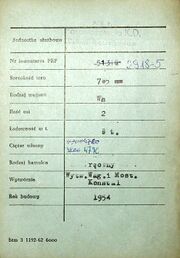 Jednostka służbowa
Nr inwentarza PKP 2918-5
Szerokość toru 750 mm
Rodzaj wagonu
Ilość osi 2
Ładowność w t. 8 t.
Ciężar własny 4790
Rodzaj hamulca ręczny
Wytwórnia Wytw.Wag.i Most.
Konstal
Rok budowy 1954